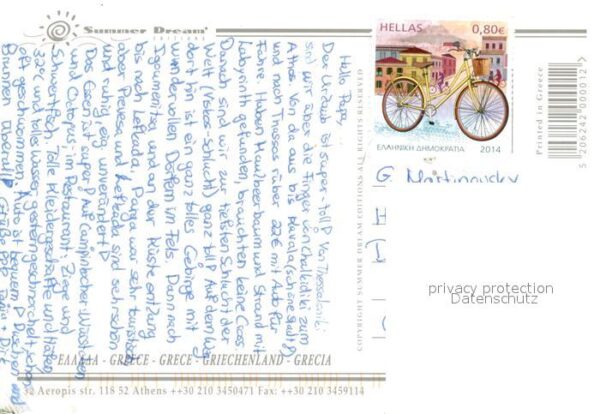 Summer Dream
EDITIONS
HELLAS 0,80€
ΕΛΛΗΝΙΚΗ ΔΗΜΟΚΡΑΤΙΑ 2014
Printed in Greece
5 206242 000012
COPYRIGHT SUMMER DREAM EDITIONS ALL RIGHTS RESERVED
privacy protection
Datenschutz
Hallo Papi,
Der Urlaub ist super-toll! Von Thessaloniki
sind wir über die Finger von Chalkidiki zum
Athos. Von da aus bis Kavala (schöne Stadt!)
und nach Thassos rüber 22€ mit Auto für
Fähre. Haben Maulbeerbaum und Strand mit
Labyrinth gefunden, brauchten keine
Danach sind wir zur tiefsten Schlucht der
Welt (Vikos-Schlucht) ganz toll! Auf dem Weg
dorthin ist ein ganz tolles Gebirge mit
wundervollen Dörfern im Fels. Dann nach
Igoumenitsa und an der Küste entlang
bis nach Lefkada, Parga war sehr touristisch
aber Preveza und Lefkada sind sehr schön
und ruhig, eig. unverändert!
Das Essen ist super! Auf Campingkocher Würstchen
und Ćevapi, im Restaurant: Ziege und
Schwertfisch, tolle Kleidergeschäfte und Häfen
32°C und tolles Wasser, gestern geschnorchelt, schon
oft geschwommen, Auto ist bequem! Duschen und
Brunnen überall! Grüße
ΕΛΛΑΔΑ - GREECE - GRECE - GRIECHENLAND - GRECIA
32 Aeropis str. 118 52 Athens ++30 210 3450471 Fax: ++30 210 3459114